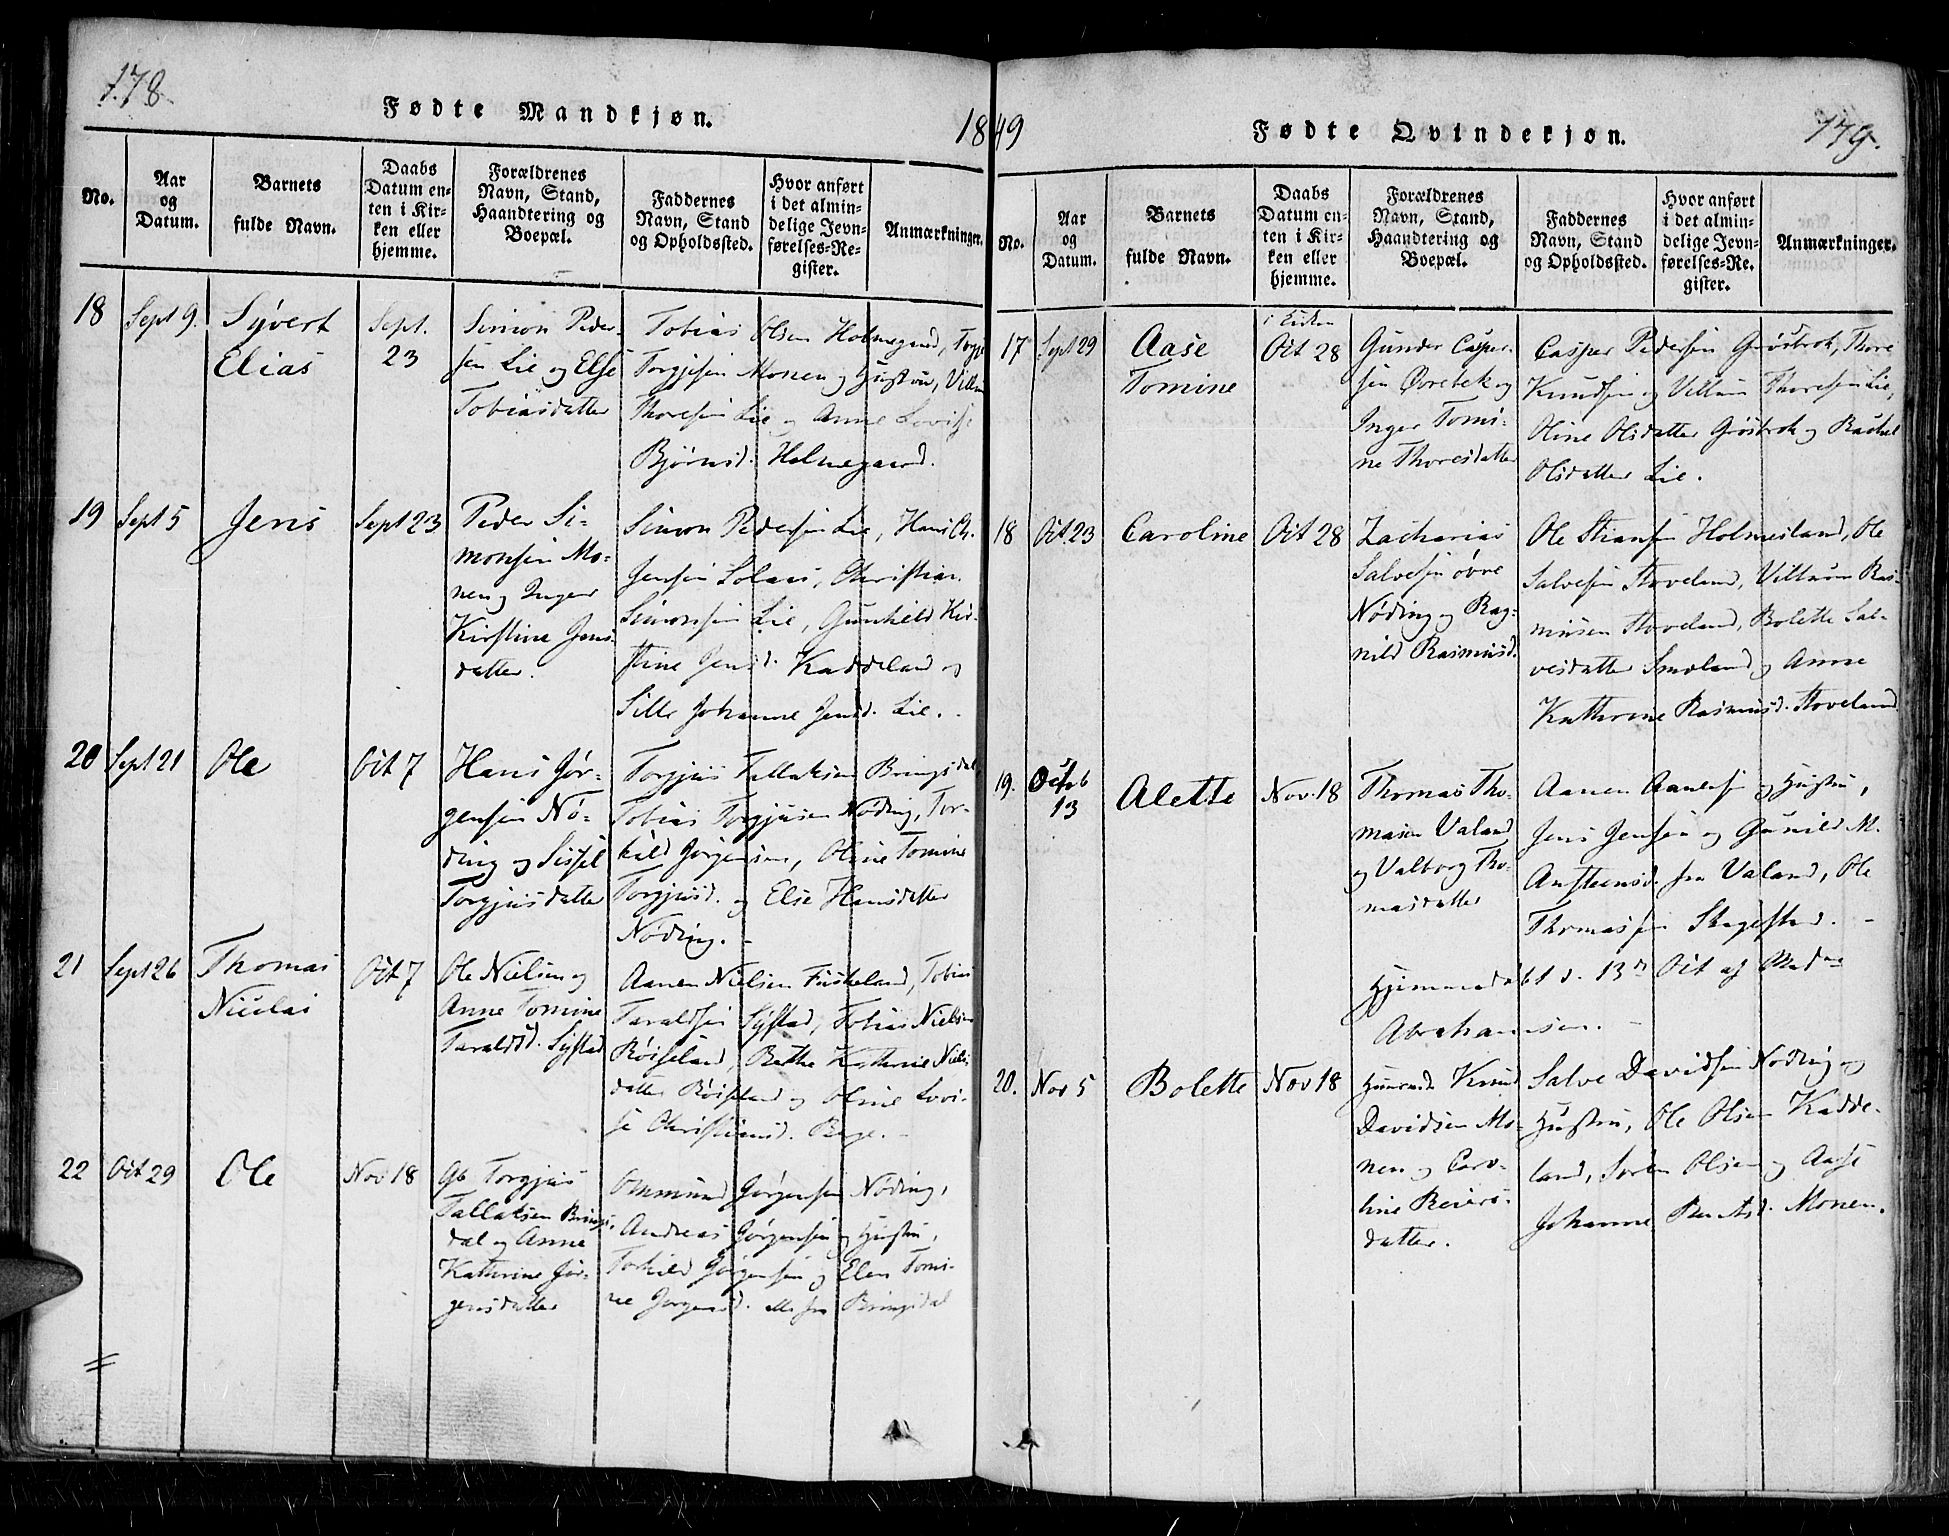 178.
Fødte Mandkjøn.
1849
Fødte Qvindekjøn.
179.
No.
Aar
og
Datum.
Barnets
fulde Navn.
Daabs
Datum en-
ten i Kir-
ken eller
hjemme.
Forældrenes
Navn, Stand,
Haandtering og
Boepæl.
Faddernes
Navn, Stand
og Opholdssted.
Hvor anført
i det almin-
delige Jevn-
førelses-Re-
gister.
Anmærkninger.
18
Sept 9.
Syvert
Elias
Sept.
23
Simon Peder-
sen Lie og Else
Tobiasdatter
Tobias Olsen Holmegaard,
Torgjusen Monen og Hustru, Villum
Thoresen Lie og Anne Lovise
Bjørnsd. Holmegaard.
19
Sept 5
Jens
Sept 23
Peder Si-
monsen Mo-
nen og Inger
Kirstine Jens
datter.
Simon Pedersen Lie, Hans Ch.
Jensen Solaas, Christian
Simonsen Lie, Gunhild Kir-
stine Jensd. Kaddeland og
Sille Johanne Jensd. Lie.
20
Sept 21
Ole
Oct 7
Hans Jør-
gensen Nø-
ding og Sissel
Torgjusdatter
Torgjus Tallaksen Bringsdal
Tobias Torgjusen Nøding, Tor-
kild Jørgensen, Oline Tomine
Torgjusd. og Else Hansdatter
Nøding. -
21
Sept 26
Thomas
Nicolai
Oct 7
Ole Nielsen og
Anne Tomine
Taraldsd. Systad
Aanen Nielsen Fuskeland, Tobias
Taraldsen Systad, Tobias Nielsen
Røiseland, Berthe Kathrine Niels
datter Røiseland og Oline Lovi-
se Christiansd. Berge. -
22
Oct 29
Ole
Nov 18
Gb Torgjus
Tallaksen Brings-
dal og Anne
Kathrine Jør-
gensdatter
Ommund Jørgensen Nøding,
Andreas Jørgensen og Hustru,
Torkild Jørgensen og Elen Tomi-
ne Jørgensd. alle fra Bringsdal
No.
Aar
og
Datum.
Barnets
fulde Navn.
Daabs
Datum en-
ten i Kir-
ken eller
hjemme.
Forældrenes
Navn, Stand,
Haandtering og
Boepæl.
Faddernes
Navn, Stand
og Opholdssted.
Hvor anført
i det almin-
delige Jevn-
førelses-Re-
gister.
Anmærkninger.
17
Sept 29
Aase
Tomine
i Kirken
Oct 28
Gunder Casper-
sen Øvrebek og
Inger Tomi-
ne Thoresdatter
Casper Pedersen Grøsbrok, Thore
Knudsen og Villum Thoresen Lie,
Oline Olsdatter Grøsbrok og Rachel
Olsdatter Lie.
18
Oct. 23
Caroline
Oct 28
Zacharias
Salvesen øvre
Nøding og Rag-
nild Rasmusd.
Ole Stiansen Holmesland, Ole
Salvesen Stoveland, Villum Ras-
musen Stoveland, Bolette Sal-
vesdatter Smdland og Anne
Kathrine Rasmusd. Stoveland
19.
Oct
13
Alette
Nov. 18
Thomas Tho-
masen Valand
og Valborg Tho-
masdatter
Aanen Aanesen og Hustru,
Jens Jensen og Gunild M.
Anstensd. fra Valand, Ole
Thomassen Skagestad. -
Hjemmedøbt d. 13de Oct af Mad
Abrahamsen. -
20.
Nov 5
Bolette
Nov 18
Huusmd Knud
Davidsen Mo-
nen og Caro-
line Reiers-
datter.
Salve Davidsen Nøding og
Hustru, Ole Olsen Kadde-
land, Søren Olsen og Aase
Johanne Berntsd. Monen.